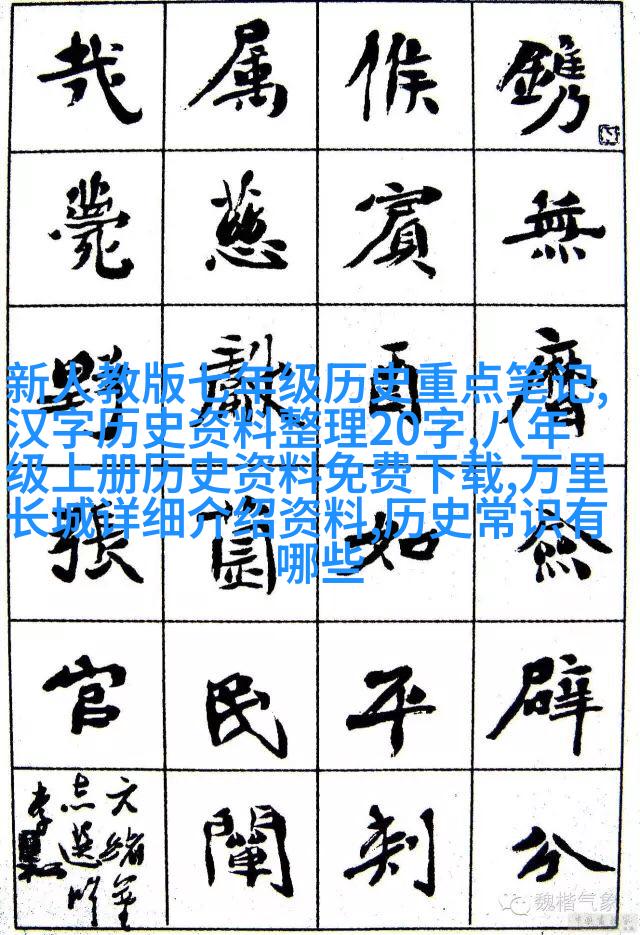 鐫無辟分
候賓酉如平刺
属慈民闡
哉薨野張官
新人教版七年级历史重点笔记,
汉字历史资料整理20字,八年
级上册历史资料免费下载,万里
长城详细介绍资料,历史常识有
哪些
魏楷气象